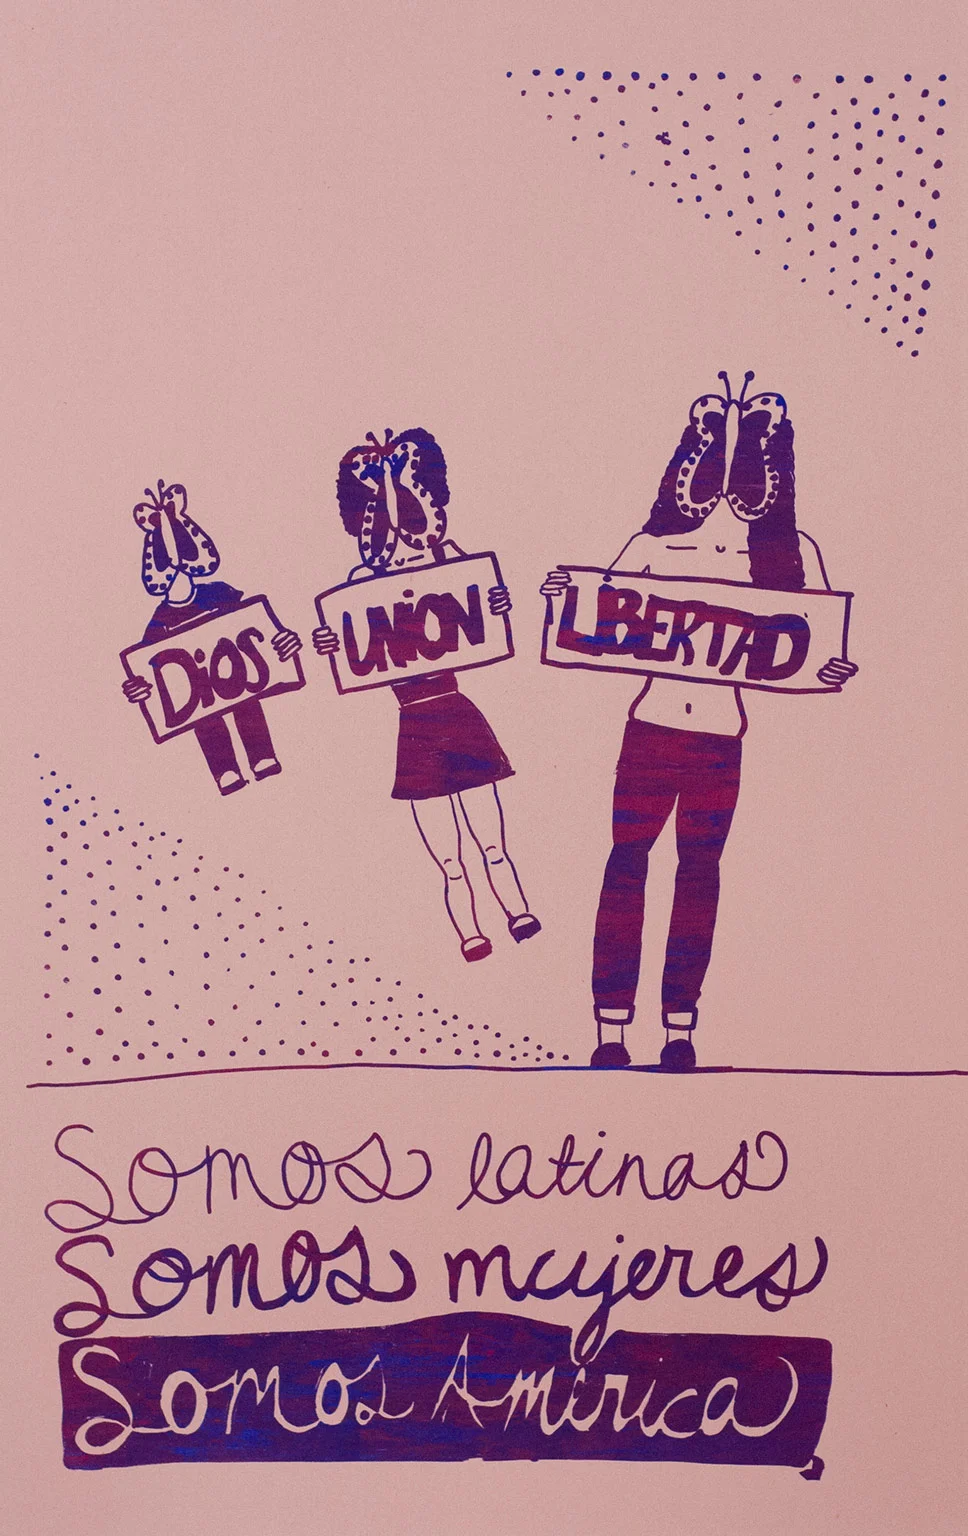 DiOS
UNiON
LIBERTAD
Somos latinas
Somos mujeres
Somos América